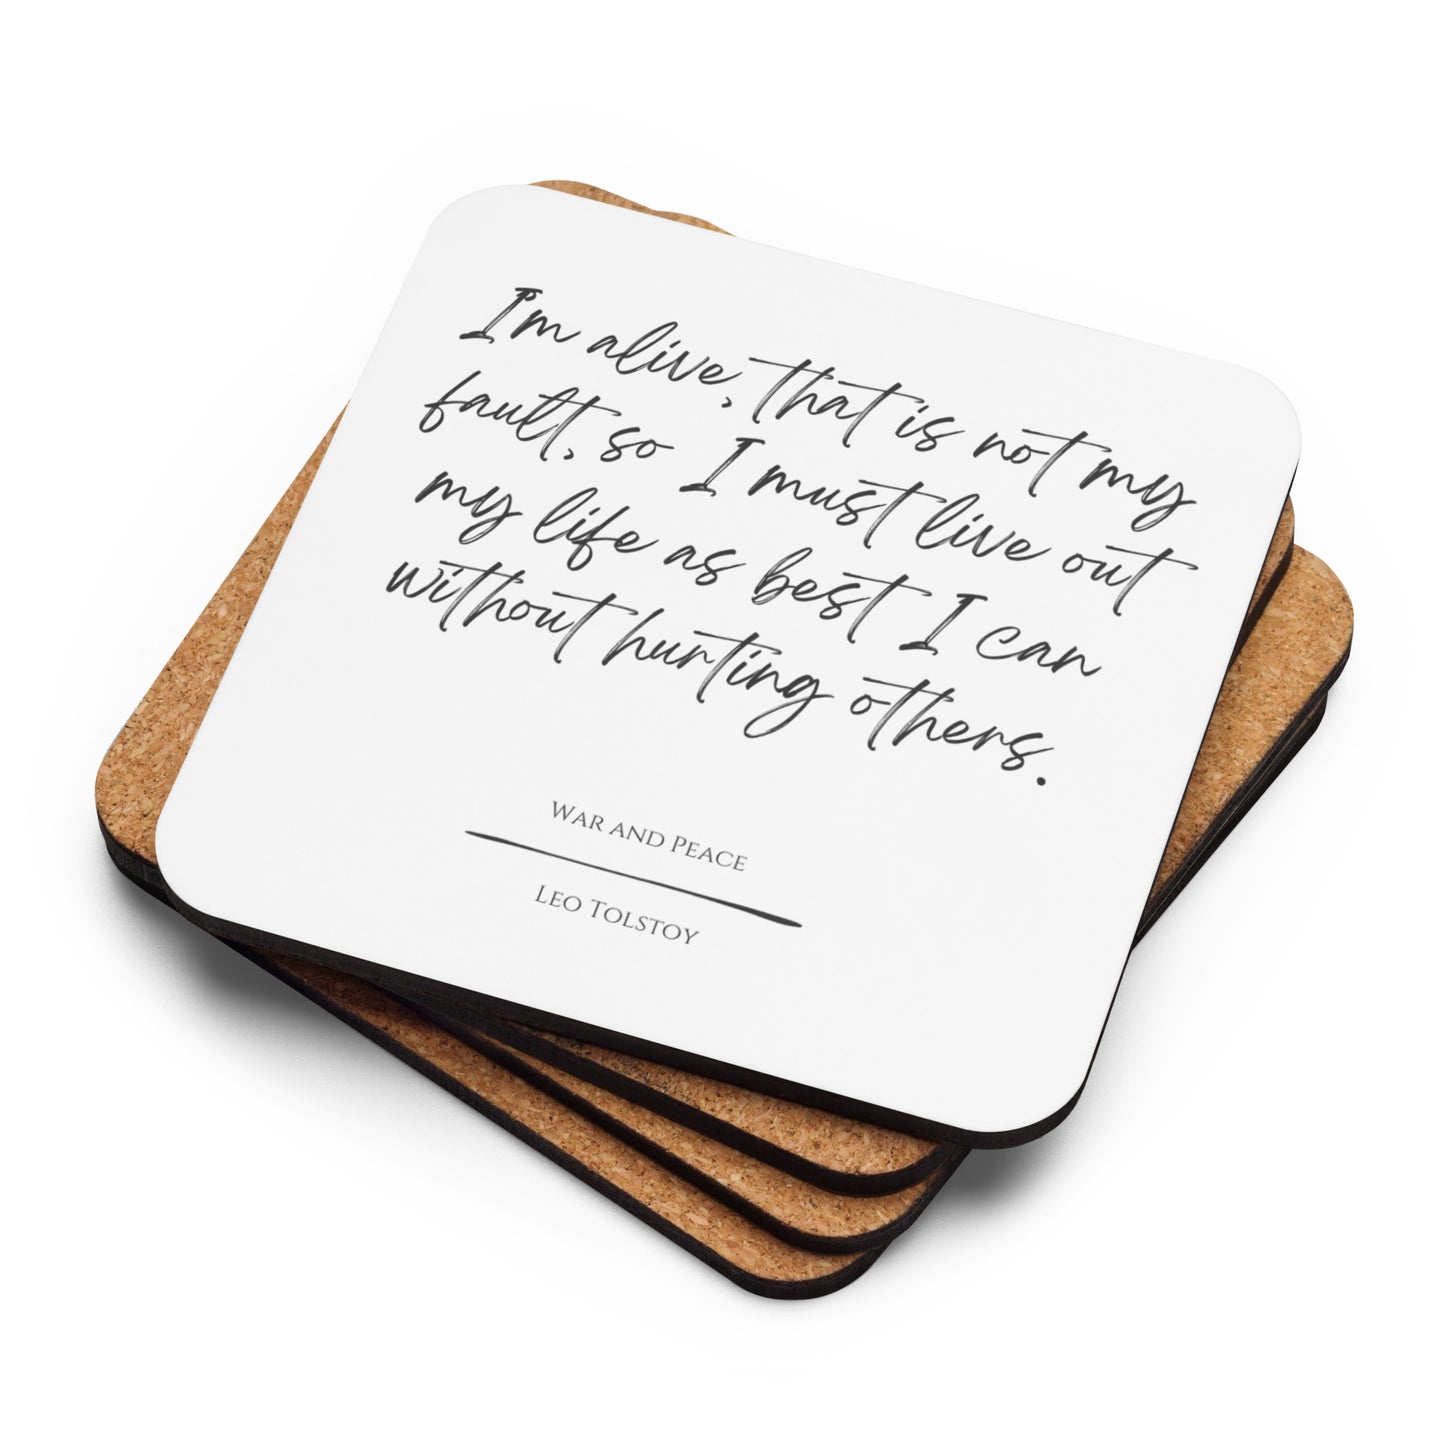 I'm alive, that is not my
fault, so I must live out
my life as best I can
without hurting others.
War and Peace
Leo Tolstoy